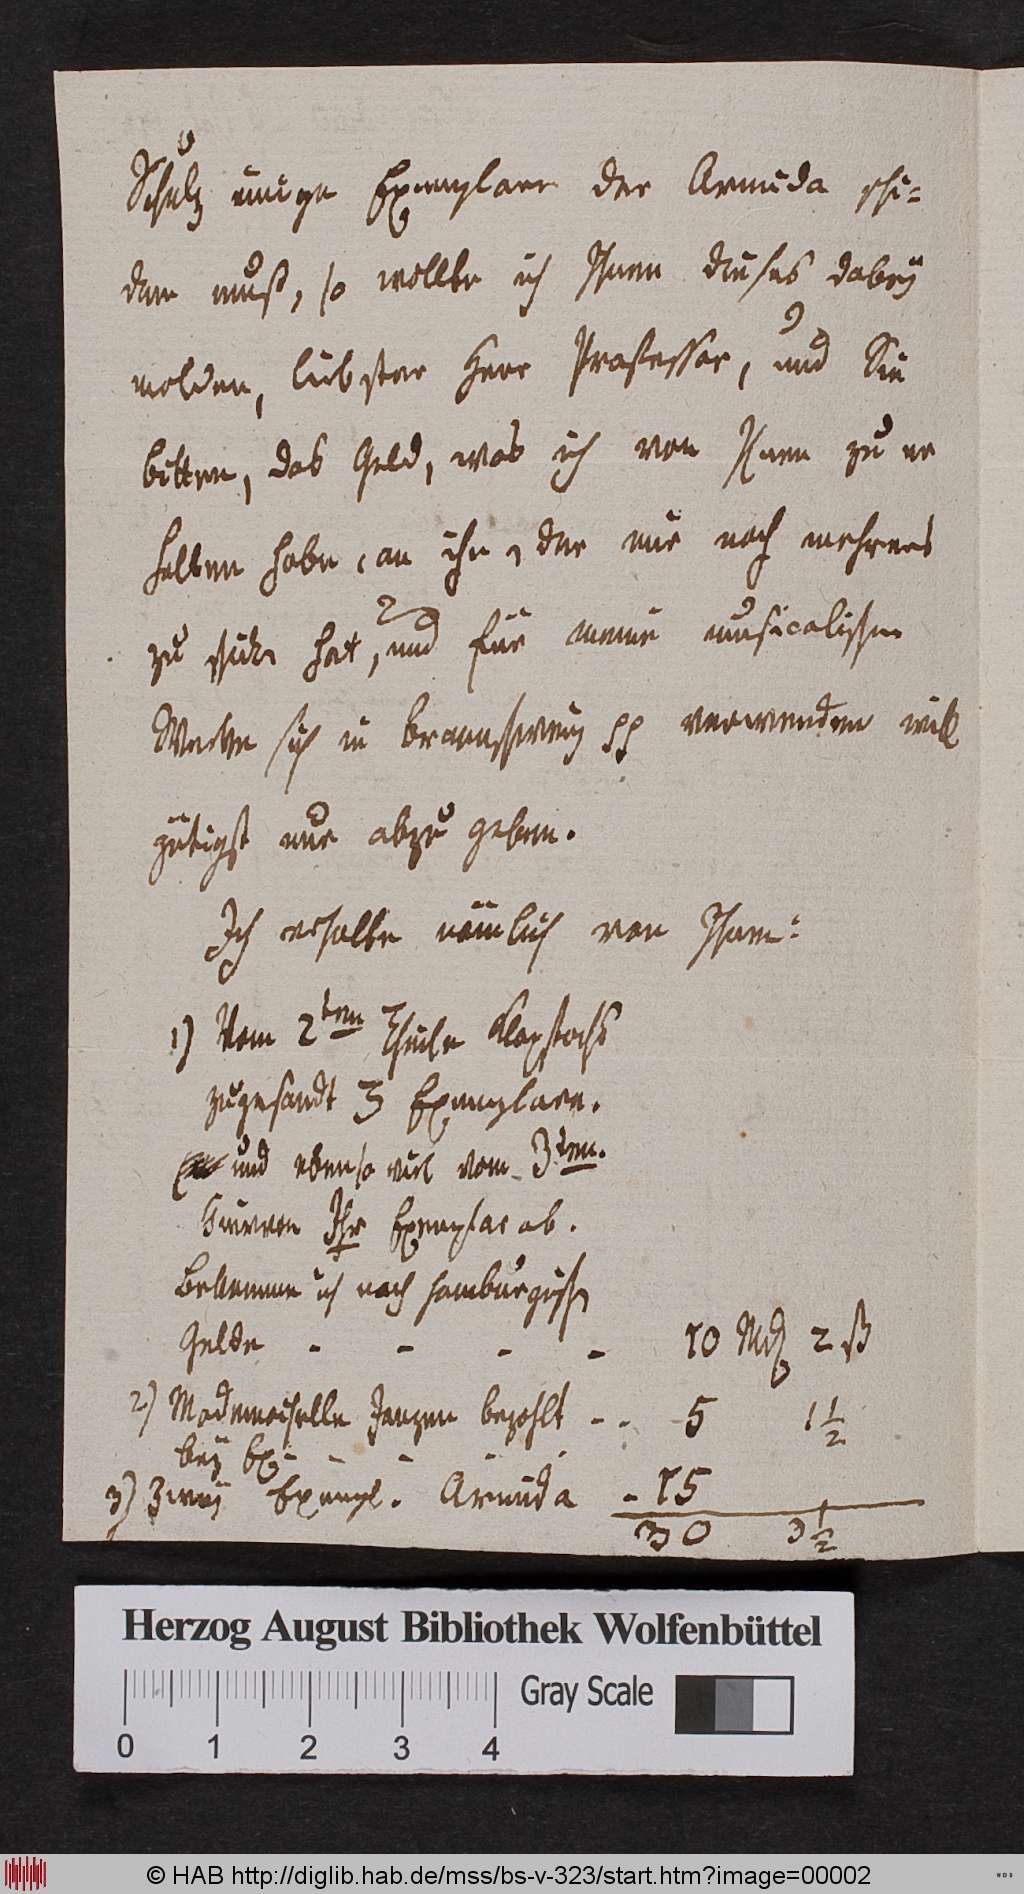 Schulz einige Exemplare der Armida schi=
cken muß, so wollte ich Ihnen dieses dabey
melden, liebster Herr Professor, und Sie
bitten, das Geld, was ich von Ihnen zu er
halten habe, an ihn, der mir noch mehreres
zu schicken hat, und für meine musicalischen
Werke sich in Braunschweig pp verwenden will
gütigst nur abzugeben.
Ich erhalte nämlich von Ihnen:
1) Vom 2ten Theile Klopstocks
zugesandt 3 Exemplare.
und ebenso viel vom 3ten.
Hiervon Ihr Exemplar ab.
Bekomme ich nach hamburgisch
Gelde - - - - 10 Mk 2 ß
2) Mademoiselle Janzen bezahlt - - 5 1 1/2
bey
3) Zwey Exempl. Armida - 15
30 3 1/2
Herzog August Bibliothek Wolfenbüttel
Gray Scale
0 1 2 3 4
© HAB http://diglib.hab.de/mss/bs-v-323/start.htm?image=00002